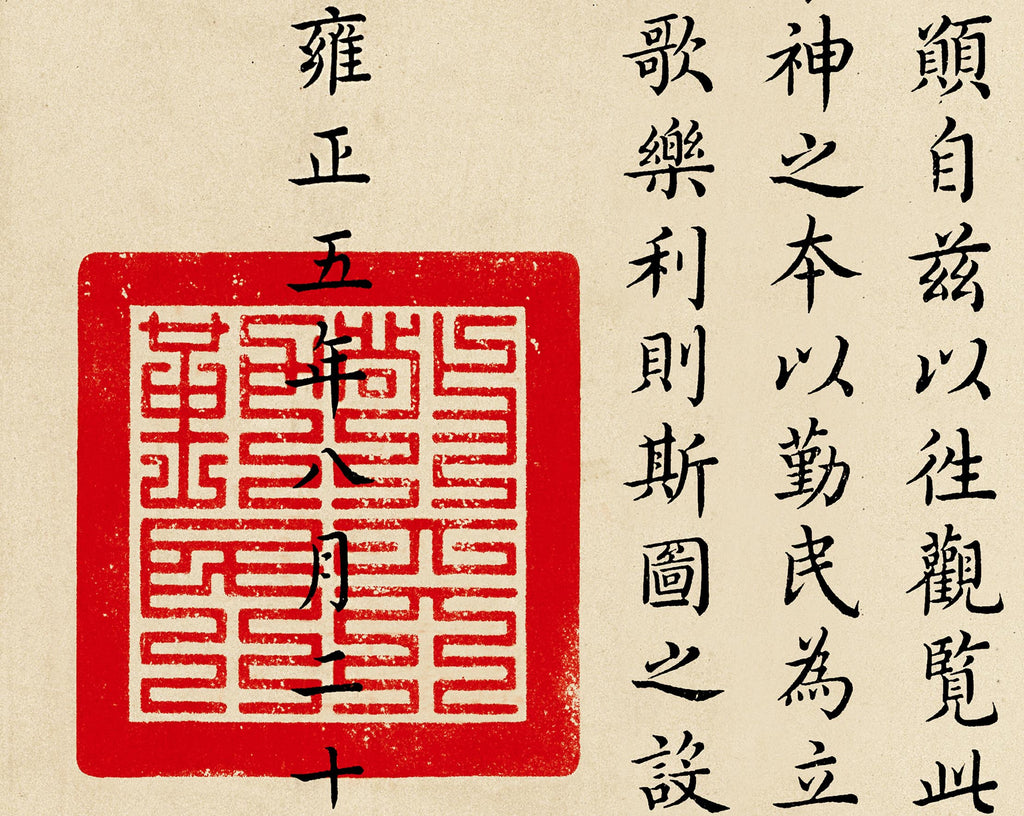 顚自茲以徃觀覽此
神之本以勤民為立
歌樂利則斯圖之設
雍正五年八月二十